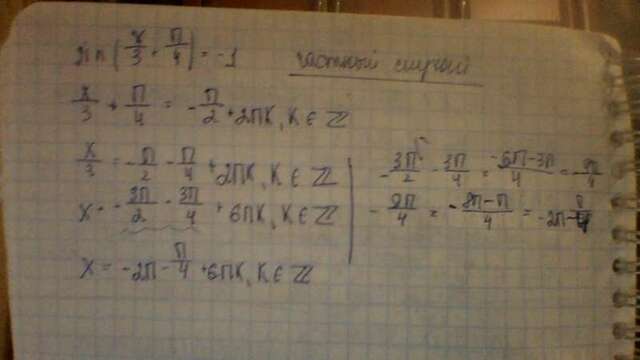 sin(x/3 + π/4) = -1 частный случай
x/3 + π/4 = -π/2 + 2πk, k ∈ ℤ
x/3 = -π/2 - π/4 + 2πk, k ∈ ℤ
x = -3π/2 - 3π/4 + 6πk, k ∈ ℤ
x = -2π - π/4 + 6πk, k ∈ ℤ
-3π/2 - 3π/4 = (-6π-3π)/4 = -9π/4
-9π/4 = (-8π-π)/4 = -2π-π/4